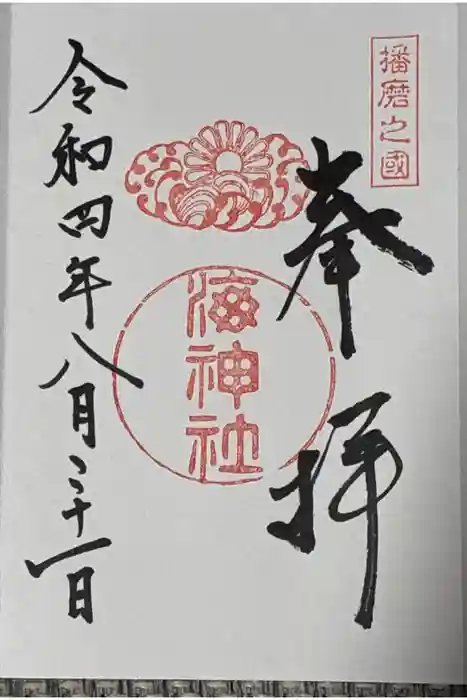 播磨之國
奉拝
海神社
令和四年八月二十一日